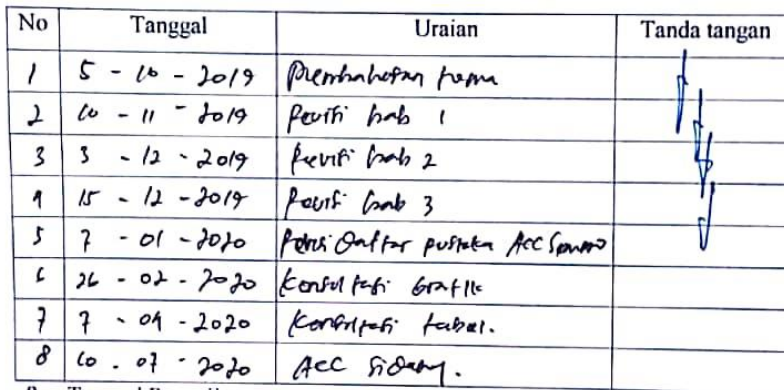 No Tanggal Uraian Tanda tangan
1 5 - 10 - 2019 Pembahasan tema
2 10 - 11 - 2019 Revisi bab 1
3 3 - 12 - 2019 Revisi bab 2
4 15 - 12 - 2019 Revisi bab 3
5 7 - 01 - 2020 Revisi Daftar pustaka ACC Sempro
6 26 - 02 - 2020 Konsultasi Grafik
7 7 - 04 - 2020 Konsultasi tabel.
8 10 - 07 - 2020 ACC Sidang.